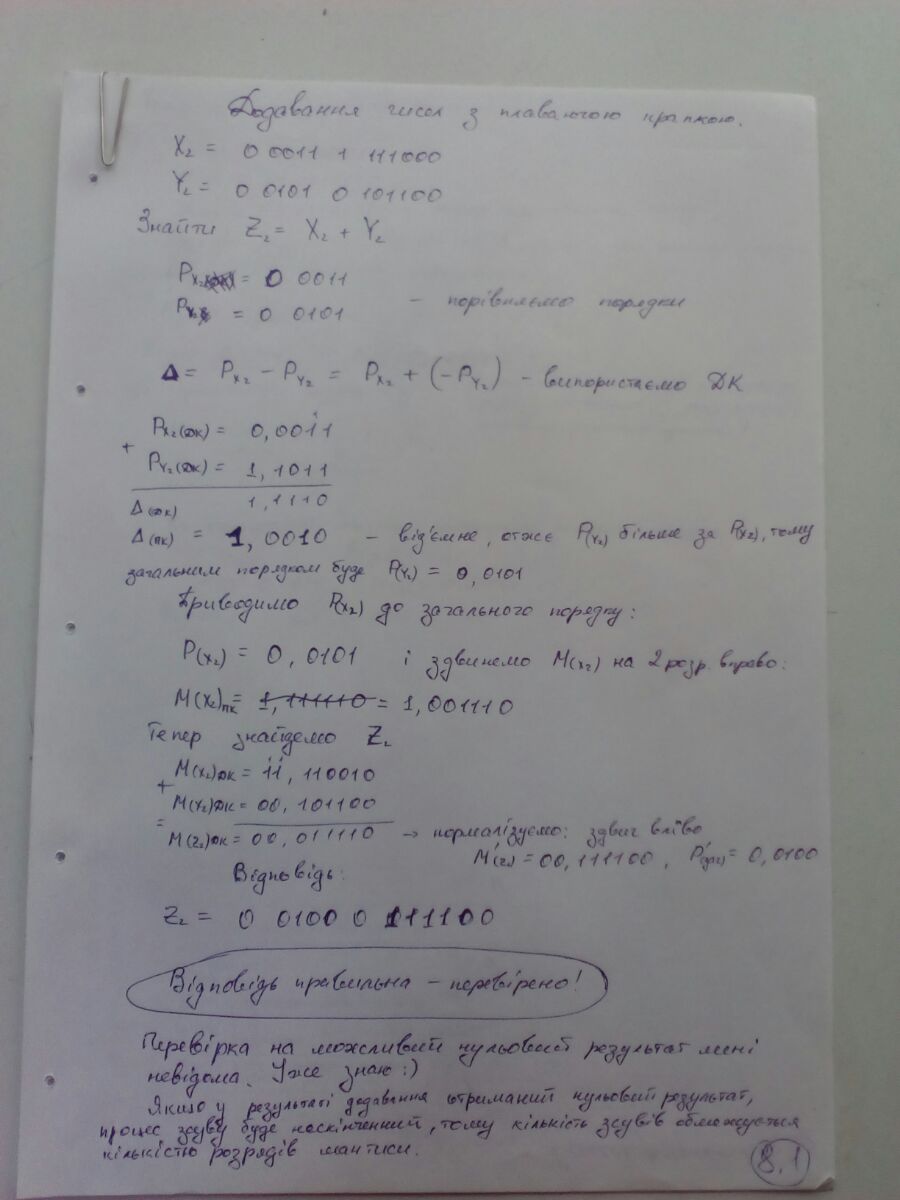 Додавання чисел з плаваючою крапкою.
X₂ = 0 0011 1 111000
Y₂ = 0 0101 0 101100
Знайти Z₂ = X₂ + Y₂
Pₓ₂ = 0 0011
= 0 0101 – порівняємо порядки
Δ = Pₓ₂ − P_Y₂ = Pₓ₂ + (−P_Y₂) – використаємо ДК
Pₓ₂(дк) = 0,0011
+
P_Y₂(дк) = 1,1011
Δ(дк) 1,1110
Δ(пк) = 1,0010 – від'ємне, отже P(Y₂) більше за P(X₂), тому
загальним порядком буде P(Y₂) = 0,0101
Приводимо P(X₂) до загального порядку:
P(X₂) = 0,0101 і здвинемо M(X₂) на 2 розр. вправо:
M(X₂)пк = 1,111110 = 1,001110
Тепер знайдемо Z₂
M(X₂)дк = 11,110010
+
M(Y₂)дк = 00,101100
=
M(Z₂)дк = 00,011110 → нормалізуємо: здвиг вліво
M'(Z₂) = 00,111100, P'(Z₂) = 0,0100
Відповідь:
Z₂ = 0 0100 0 111100
Відповідь правильна – перевірено!
Перевірка на можливий нульовий результат мені
невідома. Уже знаю :)
Якщо у результаті додавання отриманий нульовий результат,
процес зсуву буде нескінченний, тому кількість зсувів обмежується
кількістю розрядів мантиси.
8.1